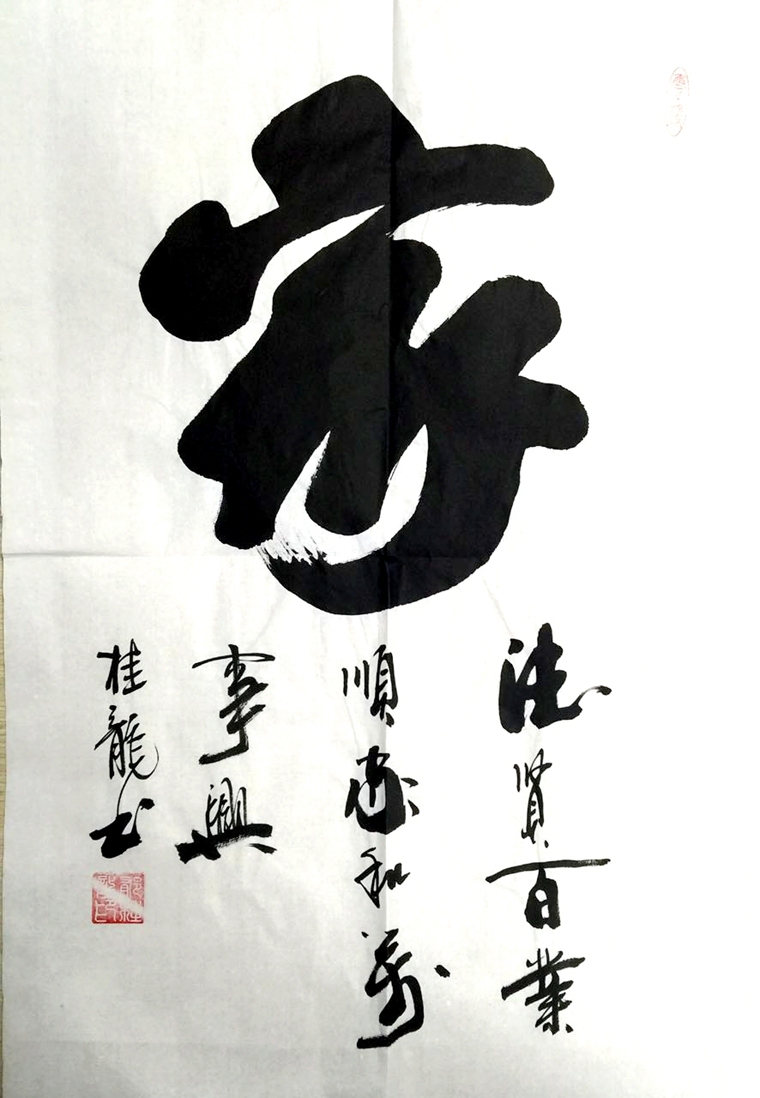 家
德賢百業
順家和萬
事興
桂龍书